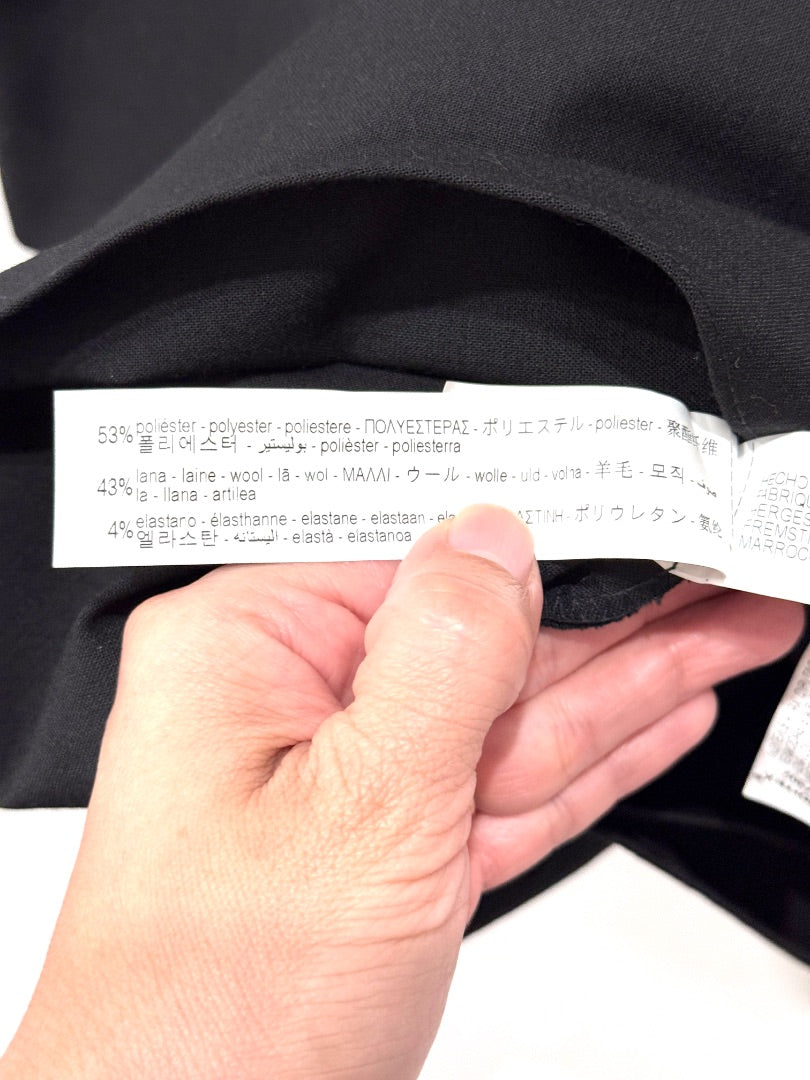 53% poliéster - polyester - poliestere - ΠΟΛΥΕΣΤΕΡΑΣ - ポリエステル - poliester - 聚酯纤维
폴리에스터 - بوليستير - polièster - poliesterra
43% lana - laine - wool - lã - wol - ΜΑΛΛΙ - ウール - wolle - uld - volna - 羊毛 - 모직 - صوف
la - llana - artilea
4% elastano - élasthanne - elastane - elastaan - ΑΣΤΙΝΗ - ポリウレタン - 氨纶
엘라스탄 - اليستانه - elastà - elastanoa
MARROC